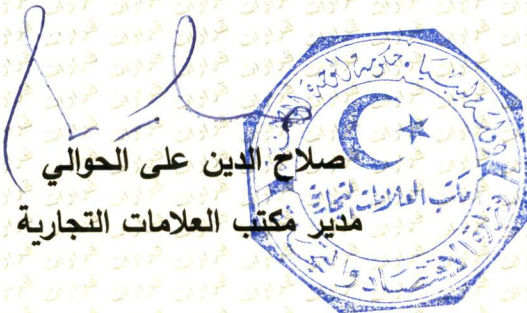 دولة ليبيا حكومة الوحدة الوطنية
مكتب العلامات التجارية
وزارة الاقتصاد والتجارة
صلاح الدين على الحوالي
مدير مكتب العلامات التجارية